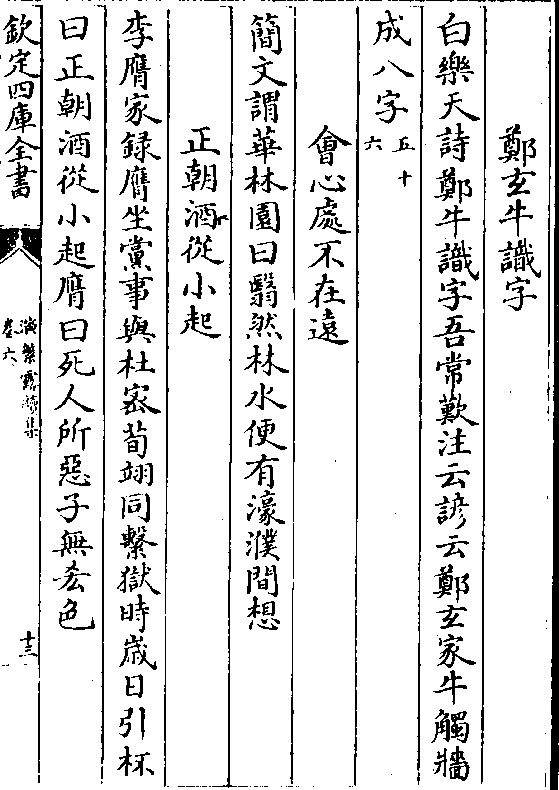 鄭玄牛識字
白樂天詩鄭牛識字吾常歎注云諺云鄭玄家牛觸牆
成八字五十六
會心處不在遠
簡文謂華林園曰翳然林水便有濠濮間想
正朝酒從小起
李膺家録膺坐黨事與杜密荀翊同繫獄時歲日引杯
曰正朝酒從小起膺曰死人所惡子無吝色
欽定四庫全書
演繁露續集
卷六
十三